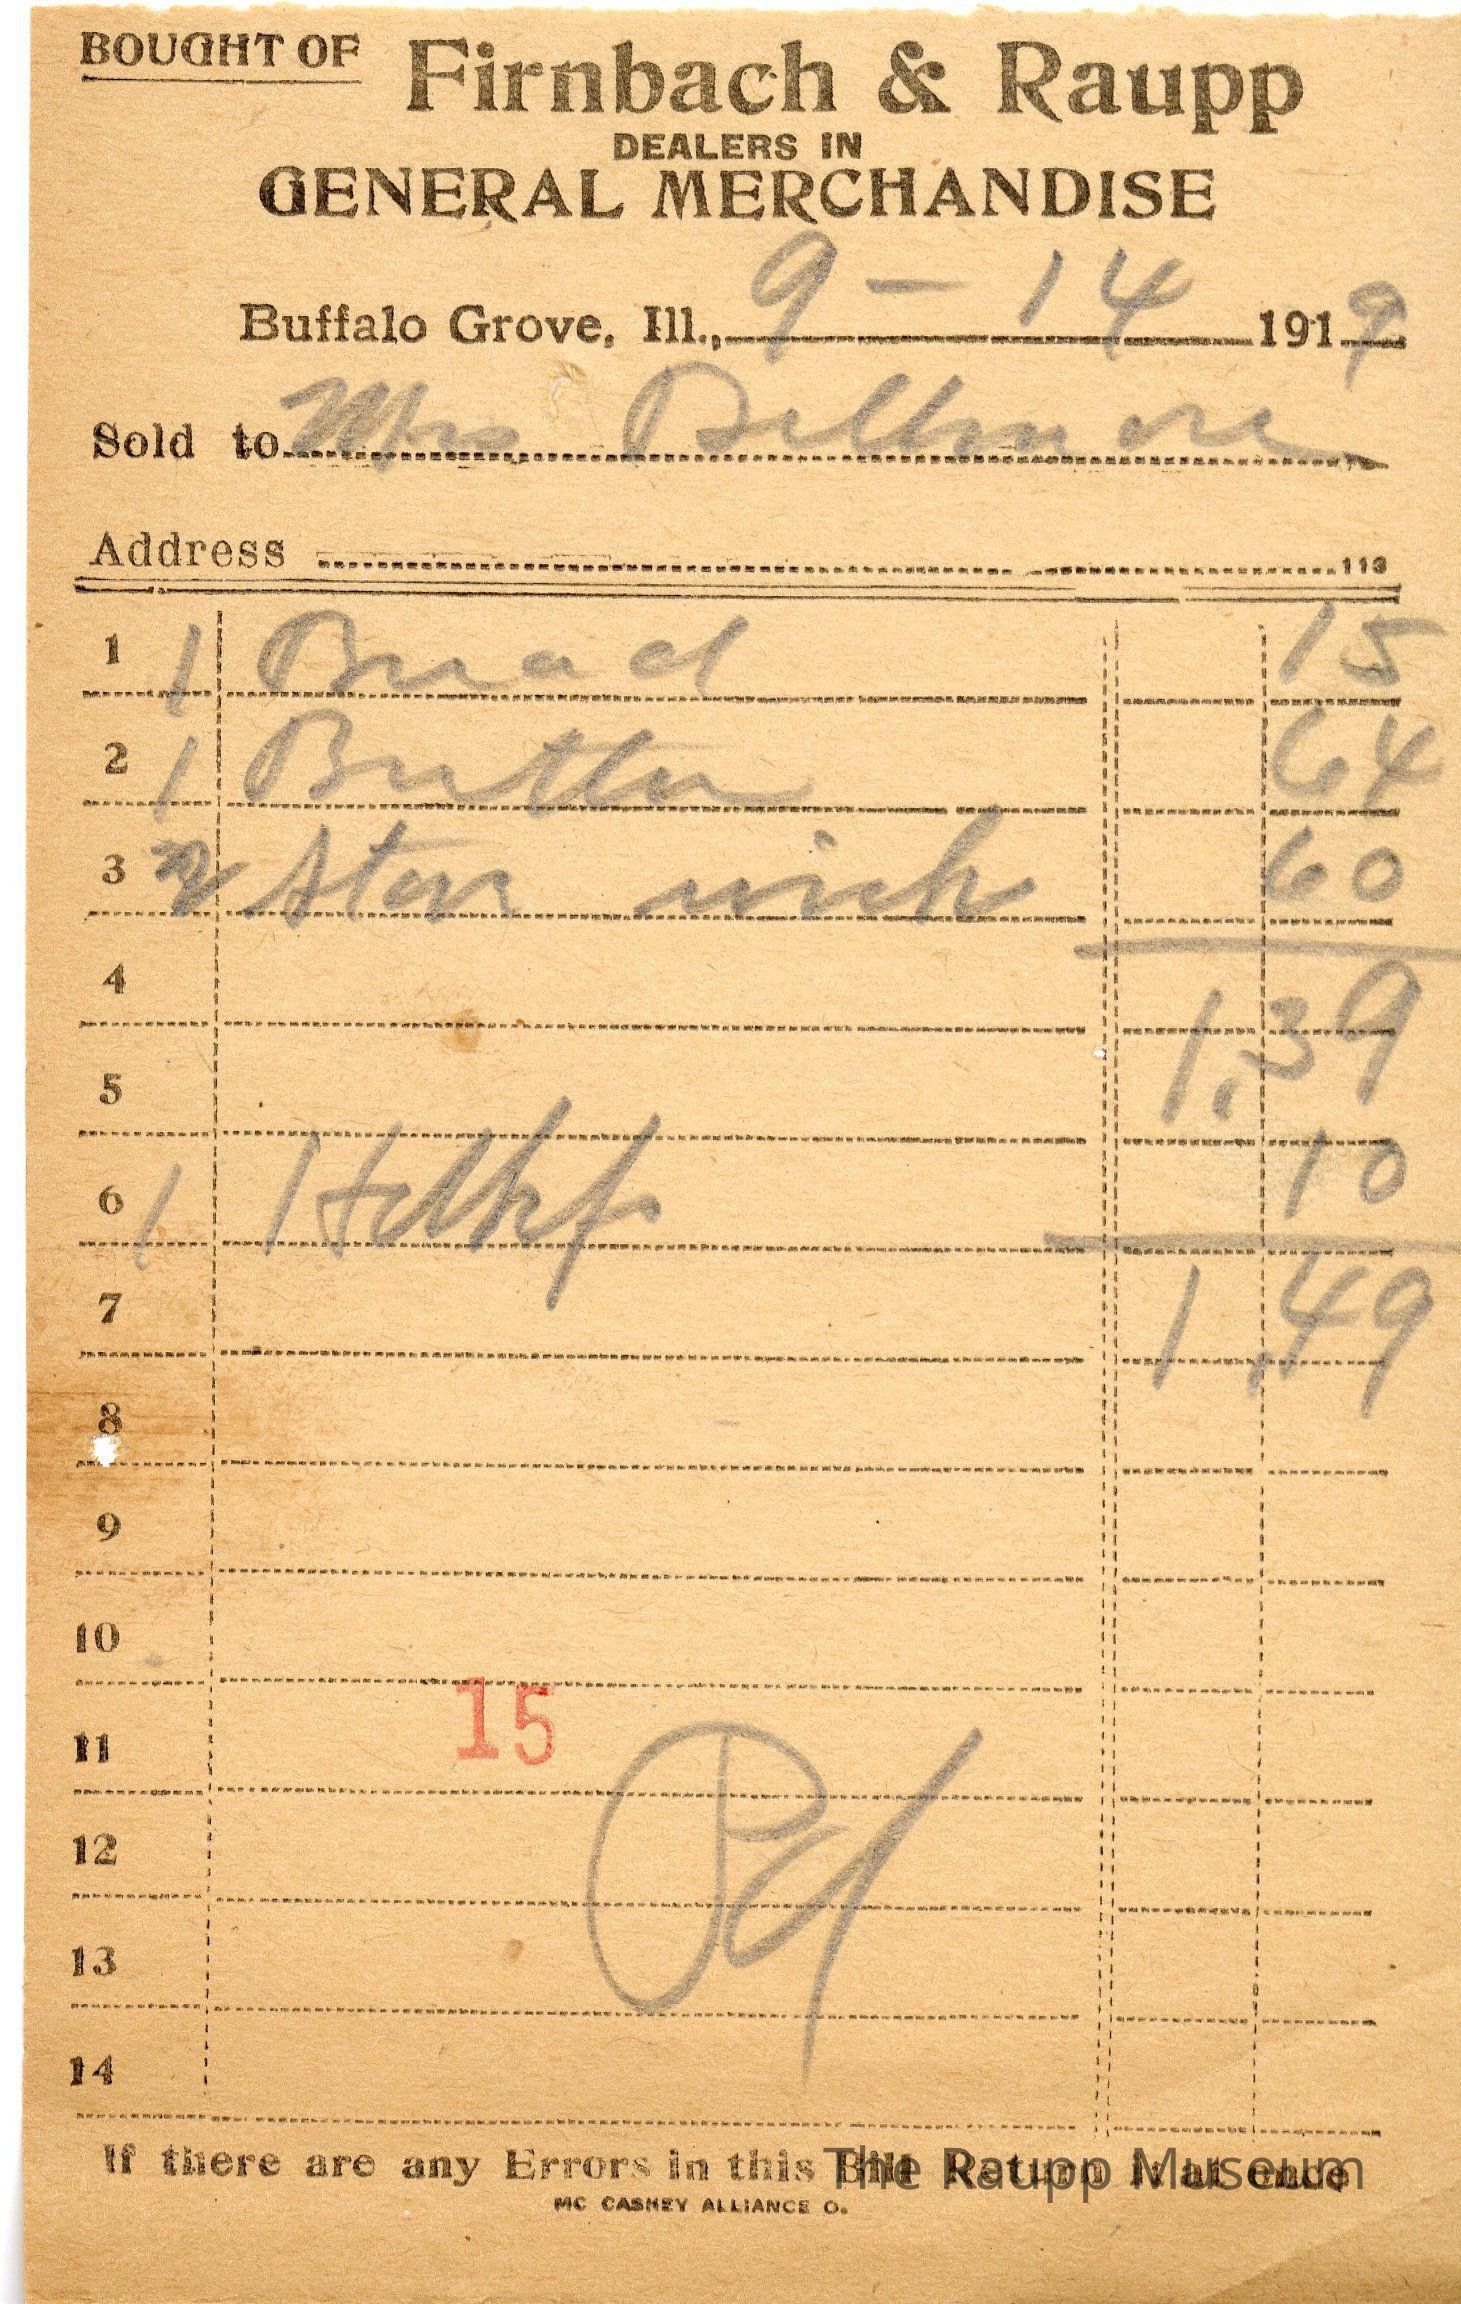 BOUGHT OF Firnbach & Raupp
DEALERS IN
GENERAL MERCHANDISE
Buffalo Grove, Ill., 9 - 14 1919
Sold to Mrs
Address 113
1 1 Bread 15
2 1 Butter 64
3 60
4 1.39
5
6 1 10
7 1.49
8
9
10
15
11
12 Pd
13
14
If there are any Errors in this Bill Return it at once
The Raupp Museum
MC CASKEY ALLIANCE O.